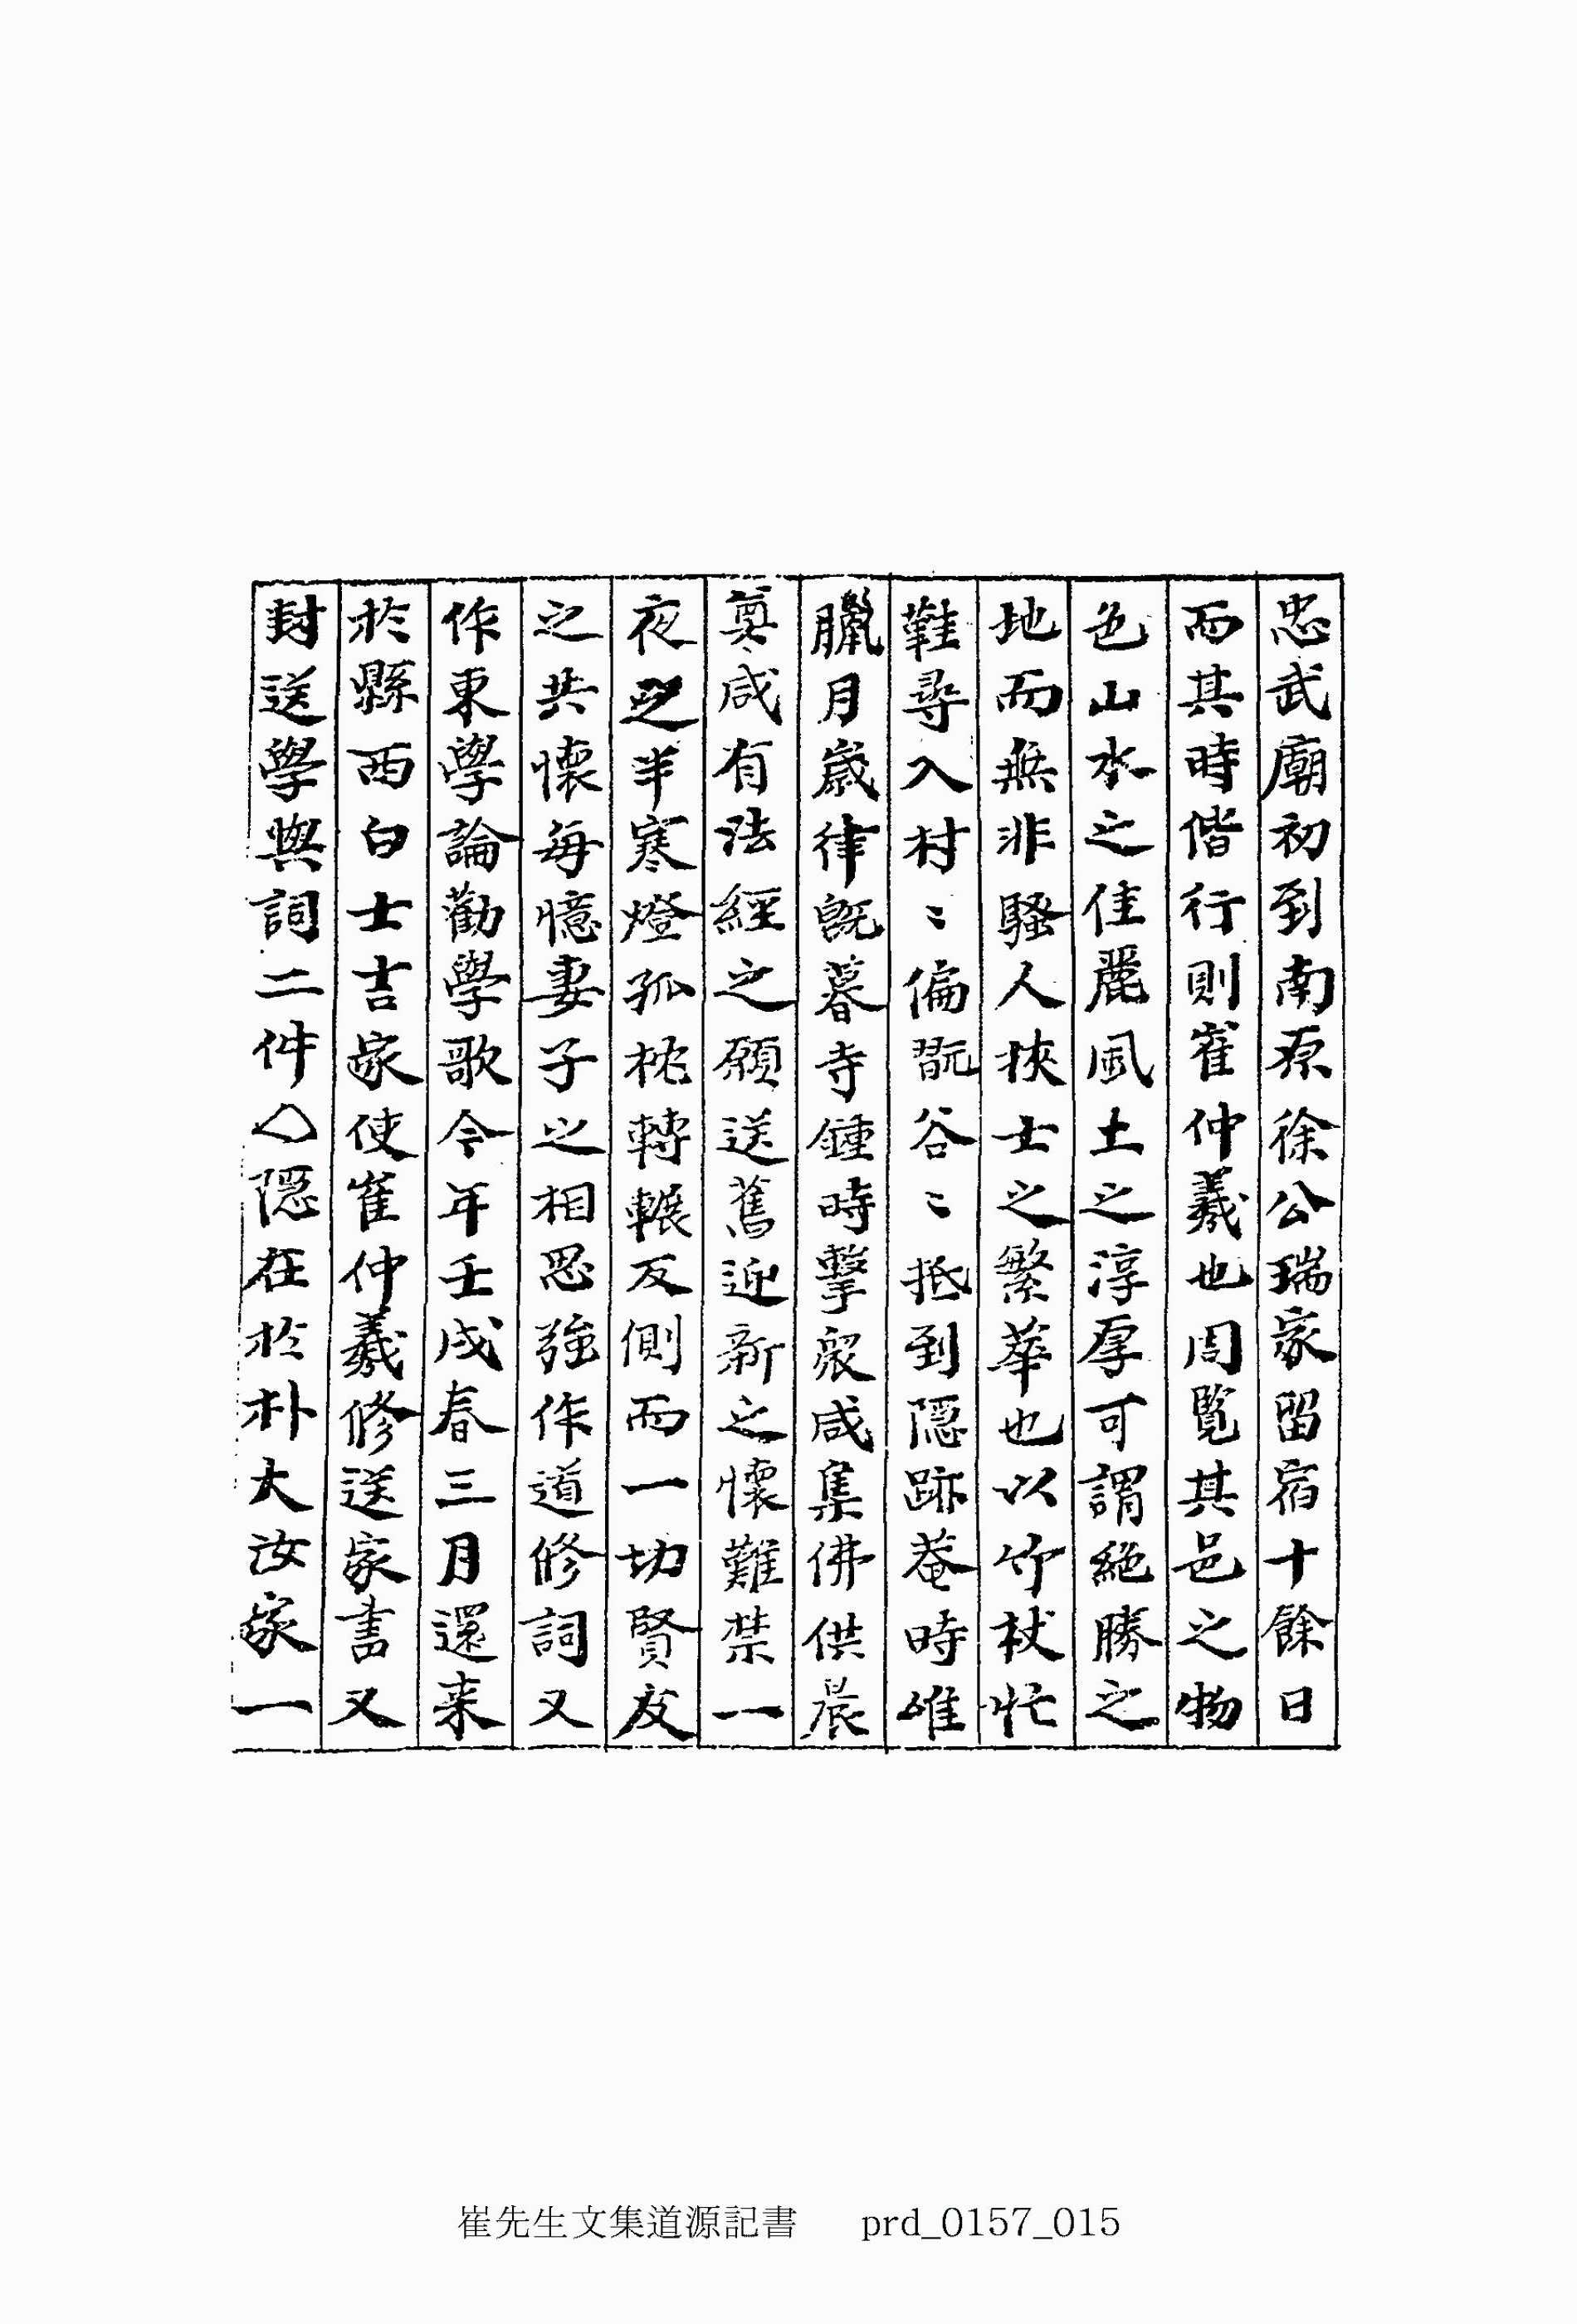 忠武廟初到南原徐公瑞家留宿十餘日
而其時偕行則崔仲羲也周覧其邑之物
色山水之佳麗風土之淳厚可謂絶勝之
地而無非騷人挾士之繁華也以竹杖忙
鞋尋入村〻偏翫谷〻抵到隱跡菴時唯
臘月歲律旣暮寺鍾時擊衆咸集佛供晨
奠咸有法經之願送舊迎新之懷難禁一
夜之半寒燈孤枕轉輾反側而一切賢友
之共懷每憶妻子之相思強作道修詞又
作東學論勸學歌今年壬戌春三月還来
於縣西白士吉家使崔仲羲修送家書又
封送學與詞二件 隱在於朴大汝家一
崔先生文集道源記書 prd_0157_015